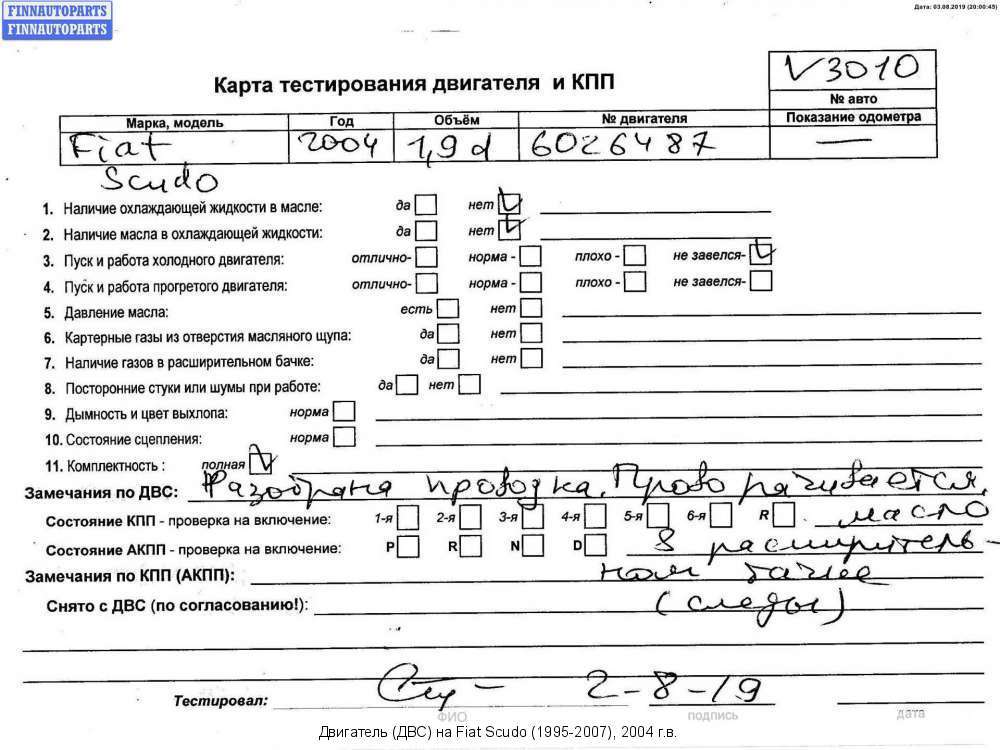 FINNAUTOPARTS
FINNAUTOPARTS
Дата: 03.08.2019 (20:00:45)
Карта тестирования двигателя и КПП
V3010
№ авто
Марка, модель Год Объём № двигателя Показание одометра
Fiat 2004 1,9 d 6026487 —
Scudo
1. Наличие охлаждающей жидкости в масле: да нет
2. Наличие масла в охлаждающей жидкости: да нет
3. Пуск и работа холодного двигателя: отлично- норма - плохо - не завелся-
4. Пуск и работа прогретого двигателя: отлично- норма - плохо - не завелся-
5. Давление масла: есть нет
6. Картерные газы из отверстия масляного щупа: да нет
7. Наличие газов в расширительном бачке: да нет
8. Посторонние стуки или шумы при работе: да нет
9. Дымность и цвет выхлопа: норма
10. Состояние сцепления: норма
11. Комплектность : полная
Замечания по ДВС: Разобрана проводка. Проворачивается.
Состояние КПП - проверка на включение: 1-я 2-я 3-я 4-я 5-я 6-я R масло
Состояние АКПП - проверка на включение: P R N D в расширитель-
Замечания по КПП (АКПП): ном бачке
Снято с ДВС (по согласованию!): (следы)
Тестировал: 2-8-19
ФИО подпись дата
Двигатель (ДВС) на Fiat Scudo (1995-2007), 2004 г.в.